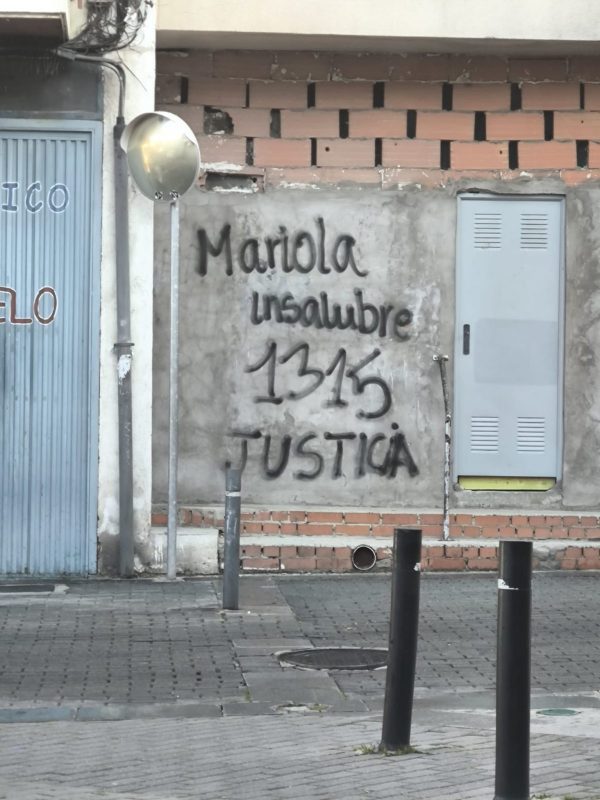 ICO
ELO
Mariola
insalubre
1315
JUSTICIA